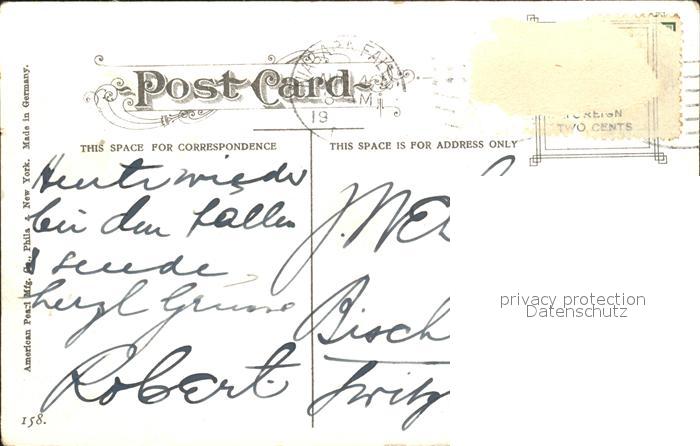 NIAGARA FALLS
19
Post Card
FOREIGN
TWO CENTS
THIS SPACE FOR CORRESPONDENCE
THIS SPACE IS FOR ADDRESS ONLY
Heute wieder
bei den Fällen
& sende
herzl Grüsse
Robert.
J. W
Bisch
Switz
privacy protection
Datenschutz
American Pearl Mfg. Co., Phila & New York. Made in Germany.
158.